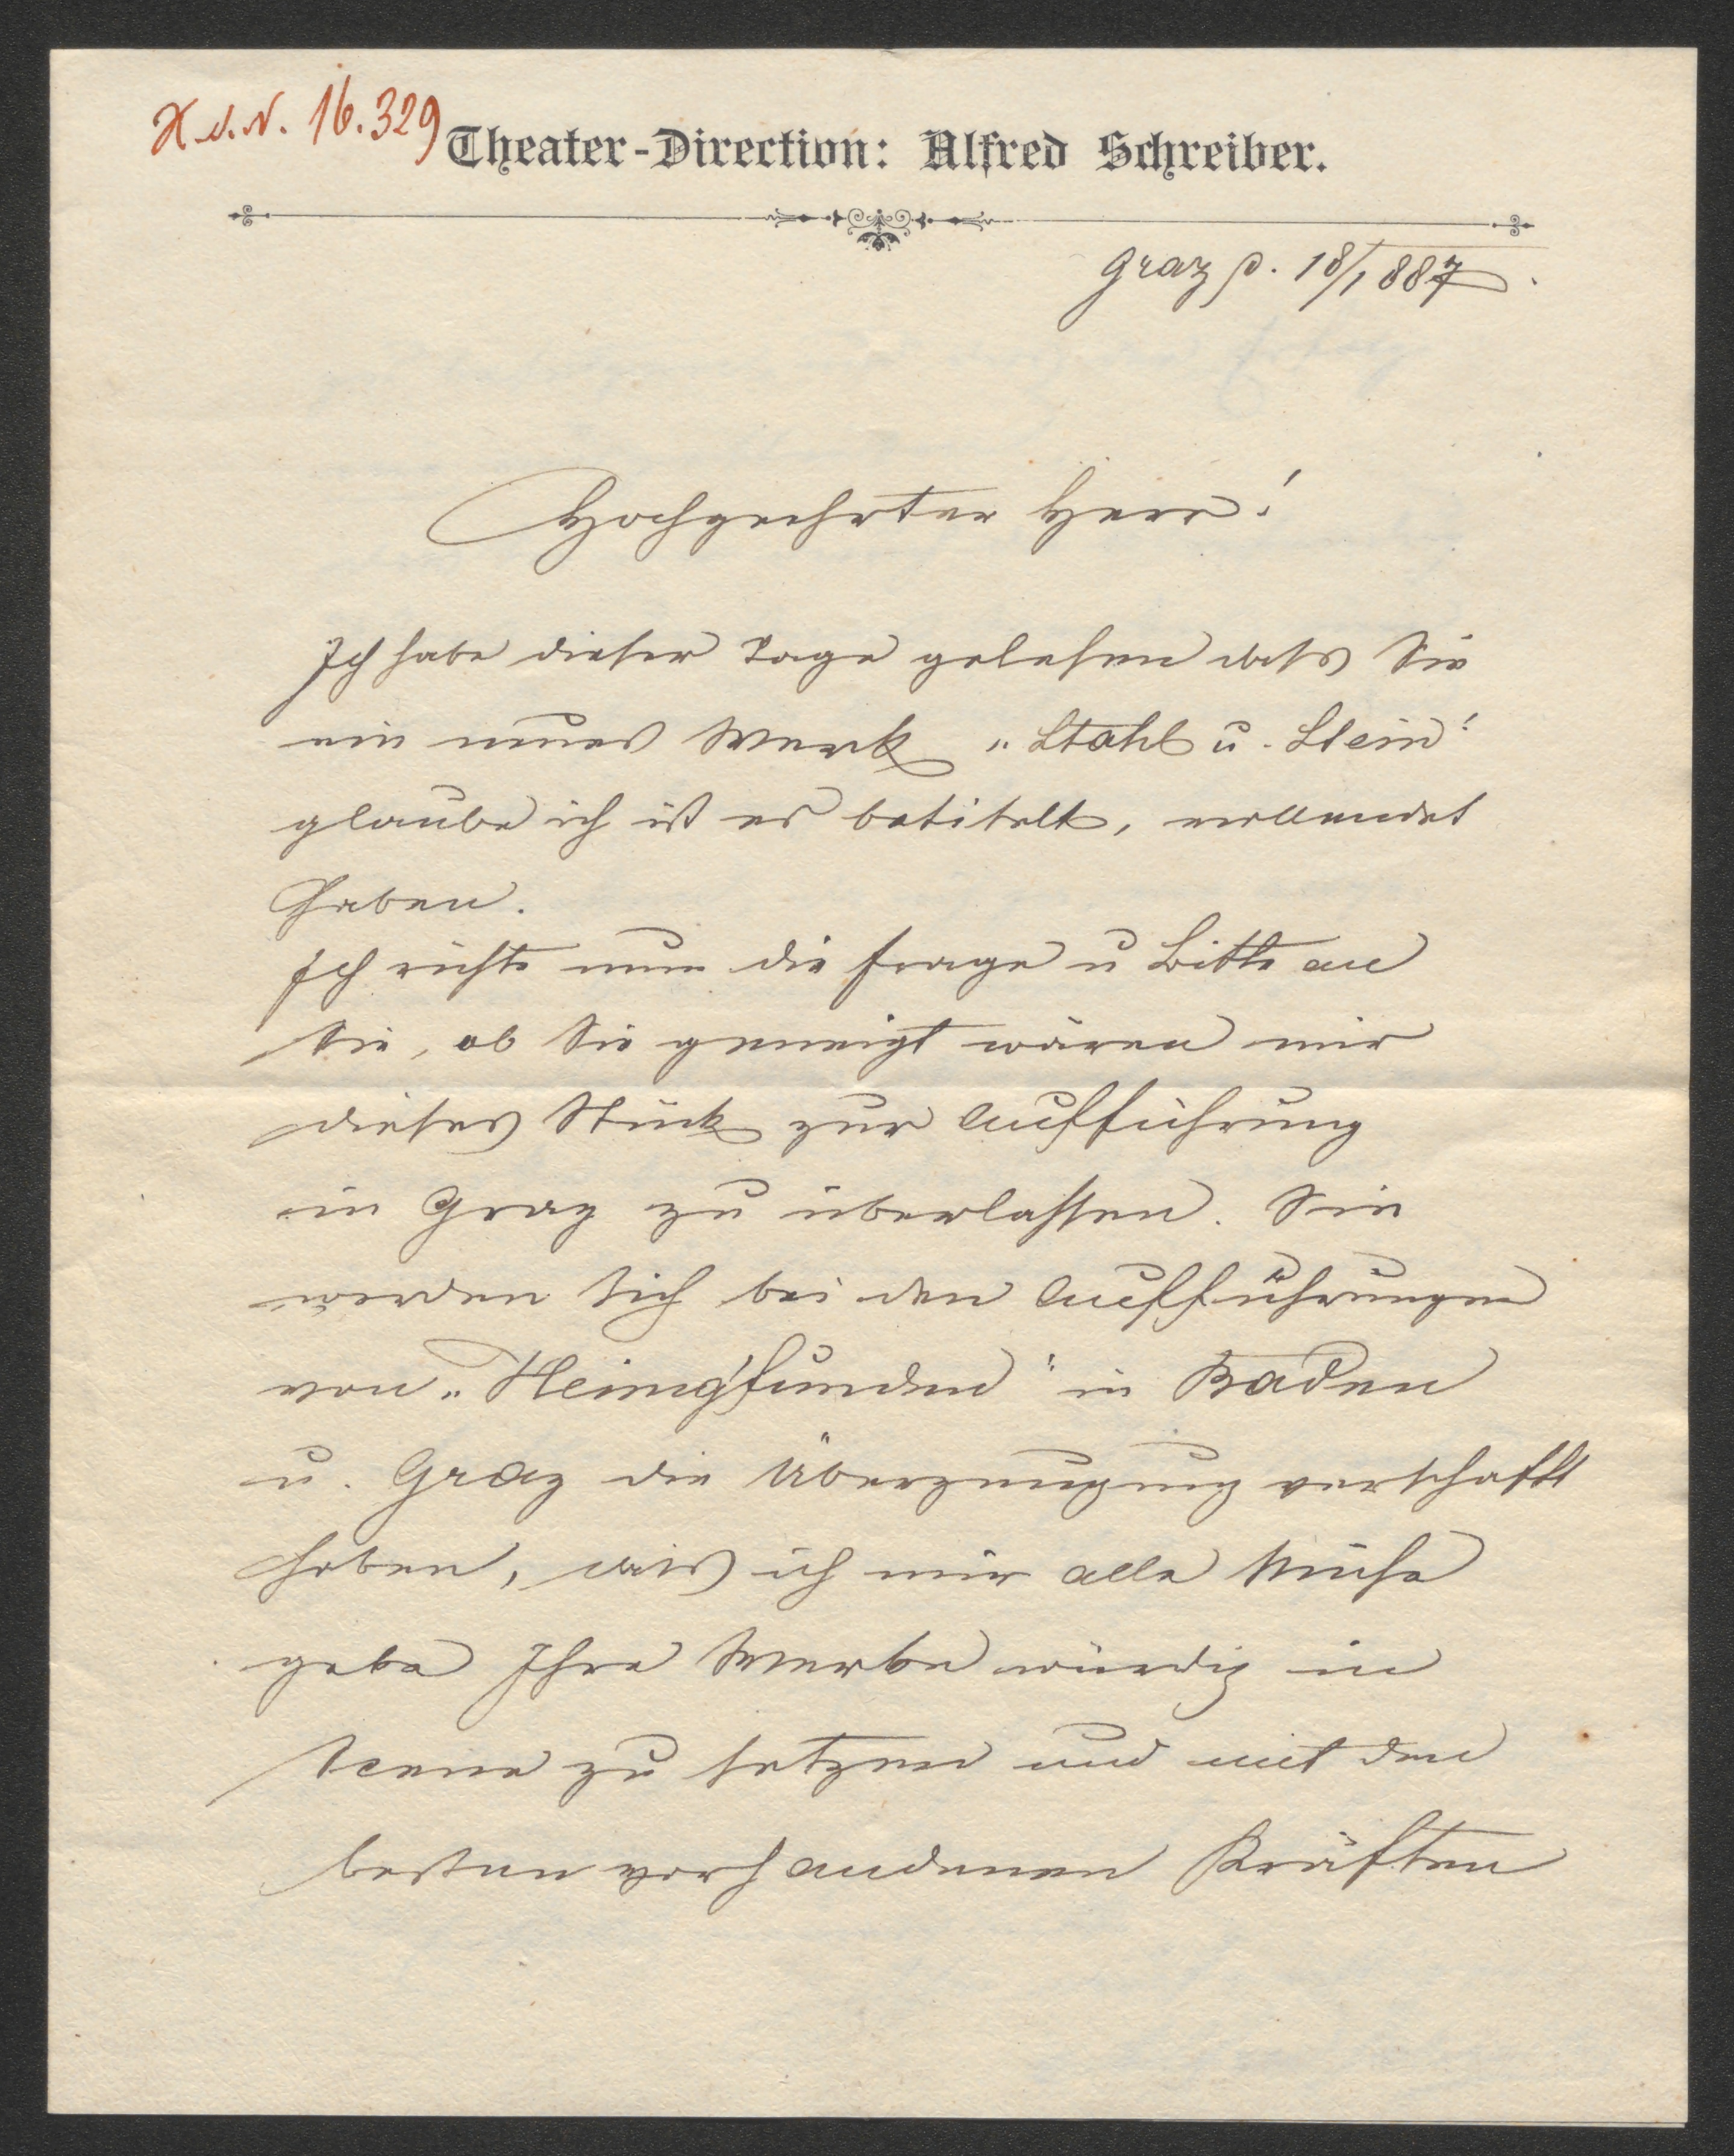 H.I.N. 16.329
Theater-Direction: Alfred Schreiber.
Graz d. 18/1 887.
Hochgeehrter Herr!
Ich habe dieser Tage gelesen dass Sie
ein neues Werk „Stahl u. Stein"
glaube ich ist es betitelt, vollendet
haben.
Ich richte nun die Frage u Bitte an
Sie, ob Sie geneigt wären mir
dieses Stück zur Aufführung
in Graz zu überlassen. Sie
werden sich bei den Aufführungen
von „Heimg'funden" in Baden
u. Graz die Überzeugung verschafft
haben, dass ich mir alle Mühe
gebe Ihre Werke würdig in
Scene zu setzen und mit den
besten vorhandenen Kräften